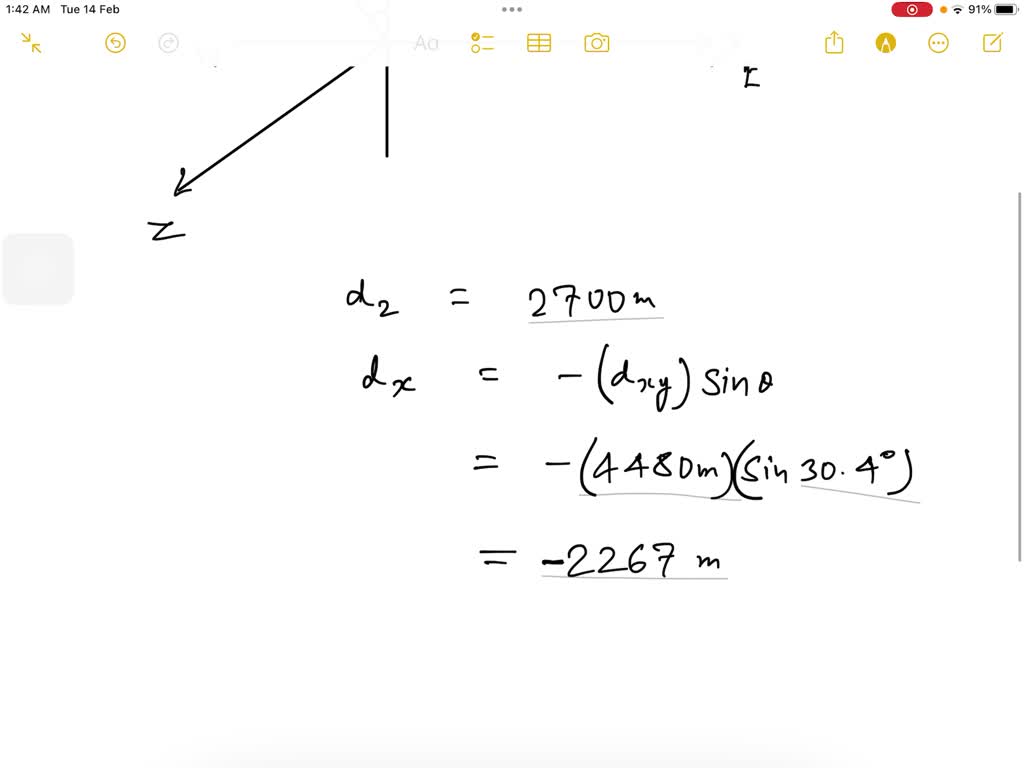 1:42 AM Tue 14 Feb 91%
Aa
Z
d₂ = 2700m
dₓ = -(dₓᵧ) sin θ
= -(4480m)(sin 30.4°)
= -2267 m